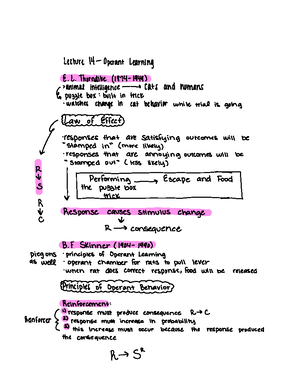 Lecture 14 - Operant Learning
E.L. Thorndike (1874-1949)
• animal intelligence → cats and humans
• puzzle box: built in trick
• watches change in cat behavior while trial is going
Law of Effect
• responses that are satisfying outcomes will be
"stamped in" (more likely)
• responses that are annoying outcomes will be
"stamped out" (less likely)
Performing → Escape and Food
the puzzle box
trick
R
↓
S
R
↓
C
Response causes stimulus change
R → consequence
B.F Skinner (1904-1990)
pigeons as well
• principles of Operant Learning
• operant chamber for rats to pull lever
• when rat does correct response, food will be released
Principles of Operant Behavior
Reinforcement:
Reinforcer
1) response must produce consequence R → C
2) response must increase in probability
3) this increase must occur because the response produced
the consequence
R → Sᴿ